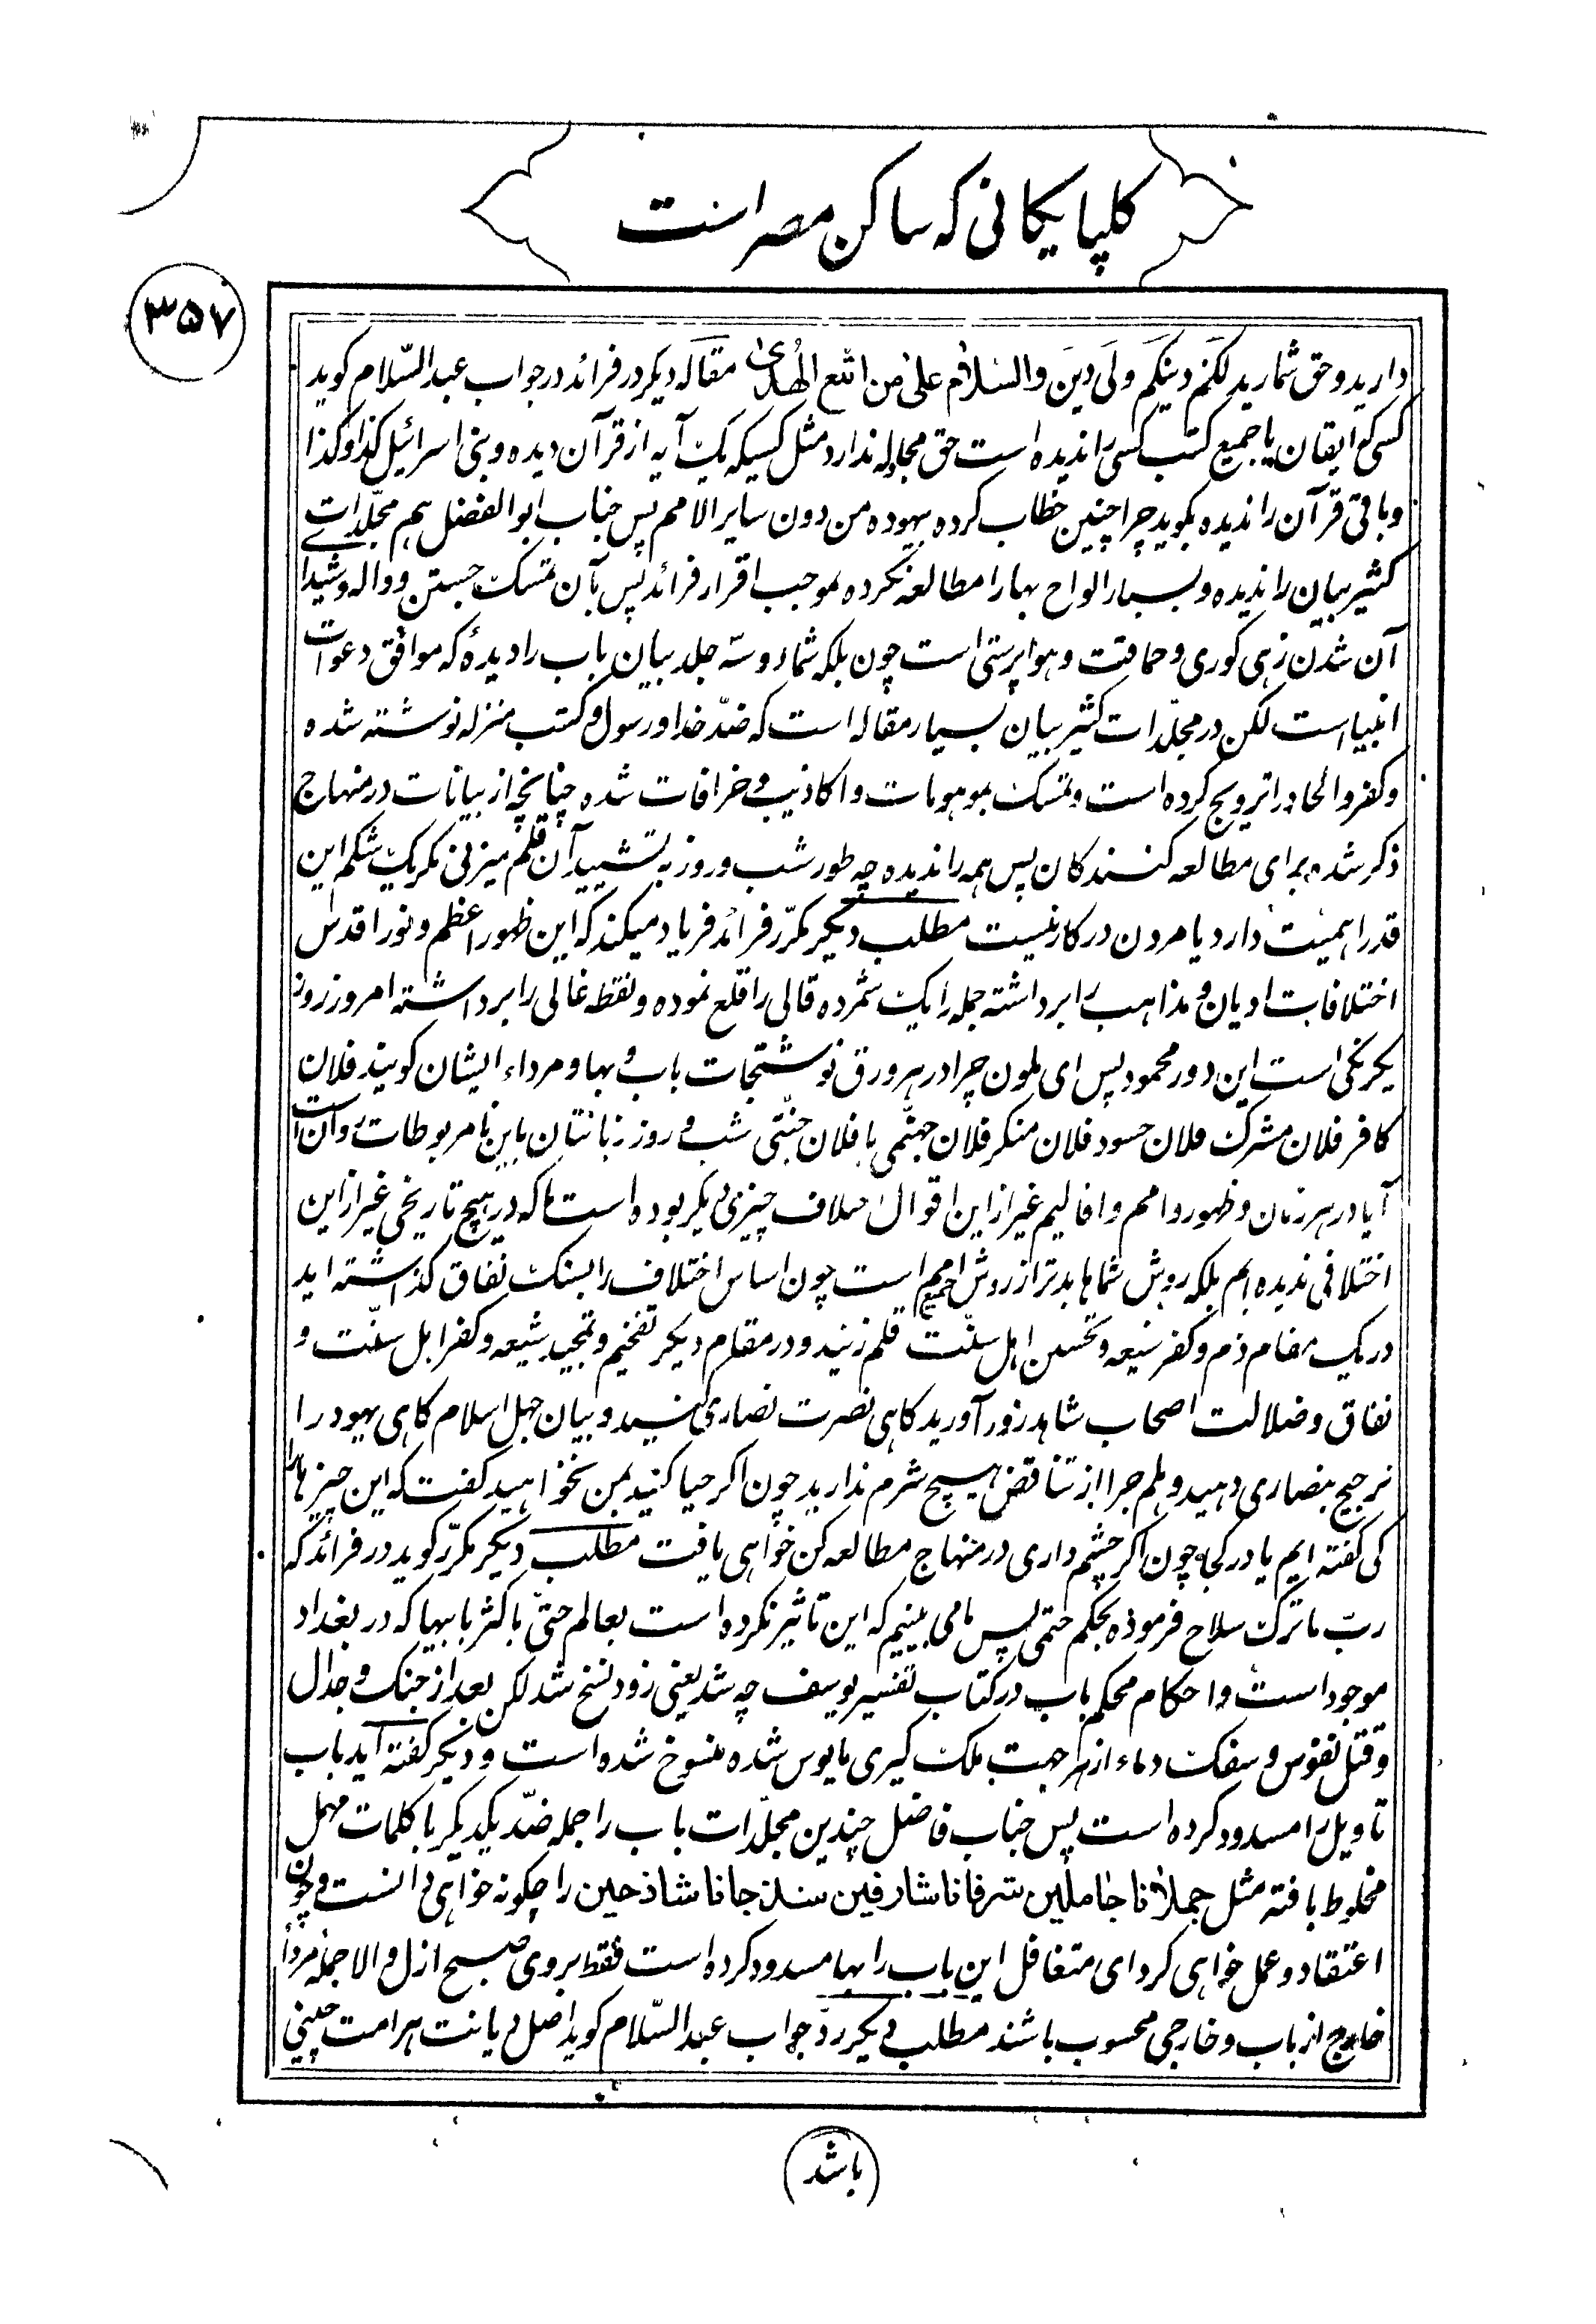 کلپایکانی که ساکن مصر است
۳۵۷
دارید و حق شمارید لَکُم دینکُم وَلَی دین والسّلام علیٰ من اتبع الهُدیٰ مقاله دیکر در فرائد در جواب عبد السّلام کوید
کسی که ایقان یا جمیع کتب کسی را ندیده است حق مجادله ندارد مثل کسیکه یک آیه از قرآن دیده و بنی اسرائیل کذا و کذا
و باقی قرآن را ندیده بکوید چرا چنین خطاب کرده بیهوده من دون سایر الامم پس جناب ابو الفضل هم مجلّدات
کثیر بیان را ندیده و بسیار الواح بها را مطالعه نکرده بموجب اقرار فرائد پس بآن تمسک جستن و واله و شیدا
آن شدن زهی کوری و حماقت و هوا پرستی است چون بلکه شما دو سه جلد بیان باب را دیدهٔ که موافق دعوات
انبیا است لکن در مجلّدات کثیر بیان بسیار مقاله است که ضدّ خدا و رسول و کتب منزله نوشته شده
و کفر و الحاد را ترویج کرده است و تمسک بموهومات و اکاذیب و خرافات شده چنانچه از بیانات در منهاج
ذکر شده برای مطالعه کنندکان پس همه را ندیده چه طور شب و روز به تشیید آن قلم میزنی مکر یک شکم این
قدر اهمیّت دارد یا مردن در کار نیست مطلب دیکر مکرّر فرائد فریاد میکند که این ظهور اعظم و نور اقدس
اختلافات ادیان و مذاهب را برداشته جمله را یک شمرده قالی را قلع نموده و نقطه غالی را برداشته امروز روز
یکرنکی است این دور محمود پس ای ملون چرا در هر ورق نوشتجات باب و بها و مرداء ایشان کویند فلان
کافر فلان مشرک فلان حسود فلان منکر فلان جهنّمی یا فلان جنّتی شب و روز زبانتان باین نامربوطات روان است
آیا در هر زمان و ظهور و امم و اقالیم غیر از این اقوال اسلاف چیزی دیکر بوده است ما که در هیچ تاریخی غیر از این
اختلافی ندیده ایم بلکه روش شماها بدتر از روش جمیع امم است چون اساس اختلاف را بسنک نفاق کذاشته اید
در یک مقام ذم و کفر شیعه و تحسین اهل سنّت قلم زنید و در مقام دیکر تفخیم و تمجید شیعه و کفر اهل سنّت و
نفاق و ضلالت اصحاب شاهد زور آورید کاهی نصرت نصاری کنید و بیان جهل اسلام کاهی یهود را
ترجیح بنصاری دهید و هلم جرا از تناقض هیچ شرم ندارید چون اکر حیا کنید بمن نخواهید کفت که این چیزها را
کی کفته ایم یا در کجا چون اکر چشم داری در منهاج مطالعه کن خواهی یافت مطلب دیکر مکرّر کوید در فرائد که
ربّ ما ترک سلاح فرموده بحکم حتمی پس ما می بینیم که این تاثیر نکرده است بعالم حتّی باکثر بابیها که در بغداد
موجود است و احکام محکم باب در کتاب تفسیر یوسف چه شد یعنی زود نسخ شد لکن بعد از جنک و جدال
و قتل نفوس و سفک دماء از هر جهت ملک کیری مایوس شده منسوخ شده است و دیکر کفته آید باب
تاویل را مسدود کرده است پس جناب فاضل چندین مجلّدات باب را جمله ضدّ یکدیکر با کلمات مهمل
مخلوط بافته مثل جملانا جاملین شرفانا شارفین جانا شاذحین را چکونه خواهی دانست و چون
اعتقاد و عمل خواهی کرد ای متغافل این باب را بها مسدود کرده است فقط بروی صبح ازل و الا جمله
خارج از باب و خارجی محسوب باشند مطلب دیکر در جواب عبد السّلام کوید اصل دیانت هر امت چنین
باشد